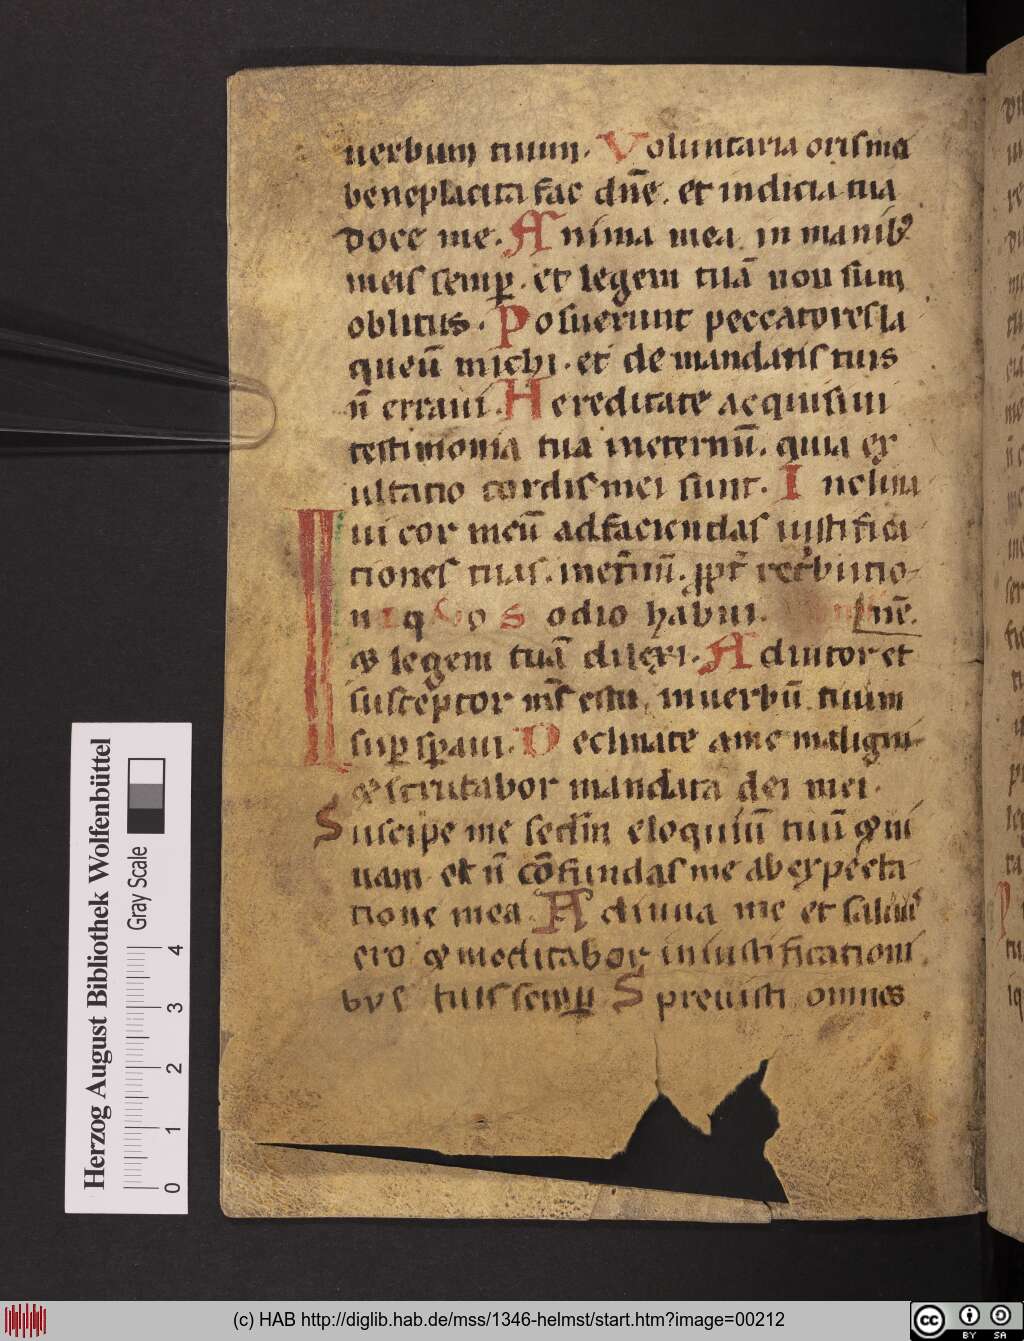 uerbum tuum. Voluntaria oris mei
beneplacita fac dn̄e. et iudicia tua
doce me. Anima mea in manib9
meis semp̱. et legem tuā non sum
oblitus. Posuerunt peccatores la
queū michi. et de mandatis tuis
n̄ erraui. Hereditate acquisiui
testimonia tua ineternū. quia ex
ultatio cordis mei sunt. Inclina
ui cor meū ad faciendas iustifica
tiones tuas. inet̄nū. ꝓpt̄ ret̄butio
n Iq o S odio habui. nē.
& legem tuā dilexi. Adiutor et
susceptor m̄s es tu. in uerbū tuum
sup̱ sp̱aui. Declinate a me maligni
& scrutabor mandata dei mei.
Suscipe me scdm̄ eloquiū tuū & ui
uam et n̄ cōfundas me ab expecta
tione mea Adiuua me et saluus
ero & meditabor in iustificationi
bus tuis semp̱ Spreuisti omnes
Herzog August Bibliothek Wolfenbüttel
Gray Scale
0 1 2 3 4
(c) HAB http://diglib.hab.de/mss/1346-helmst/start.htm?image=00212
cc BY SA